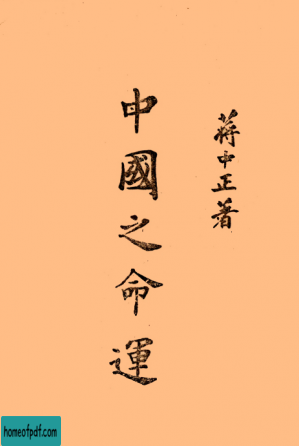 蔣中正著
中國之命運
homeofpdf.com